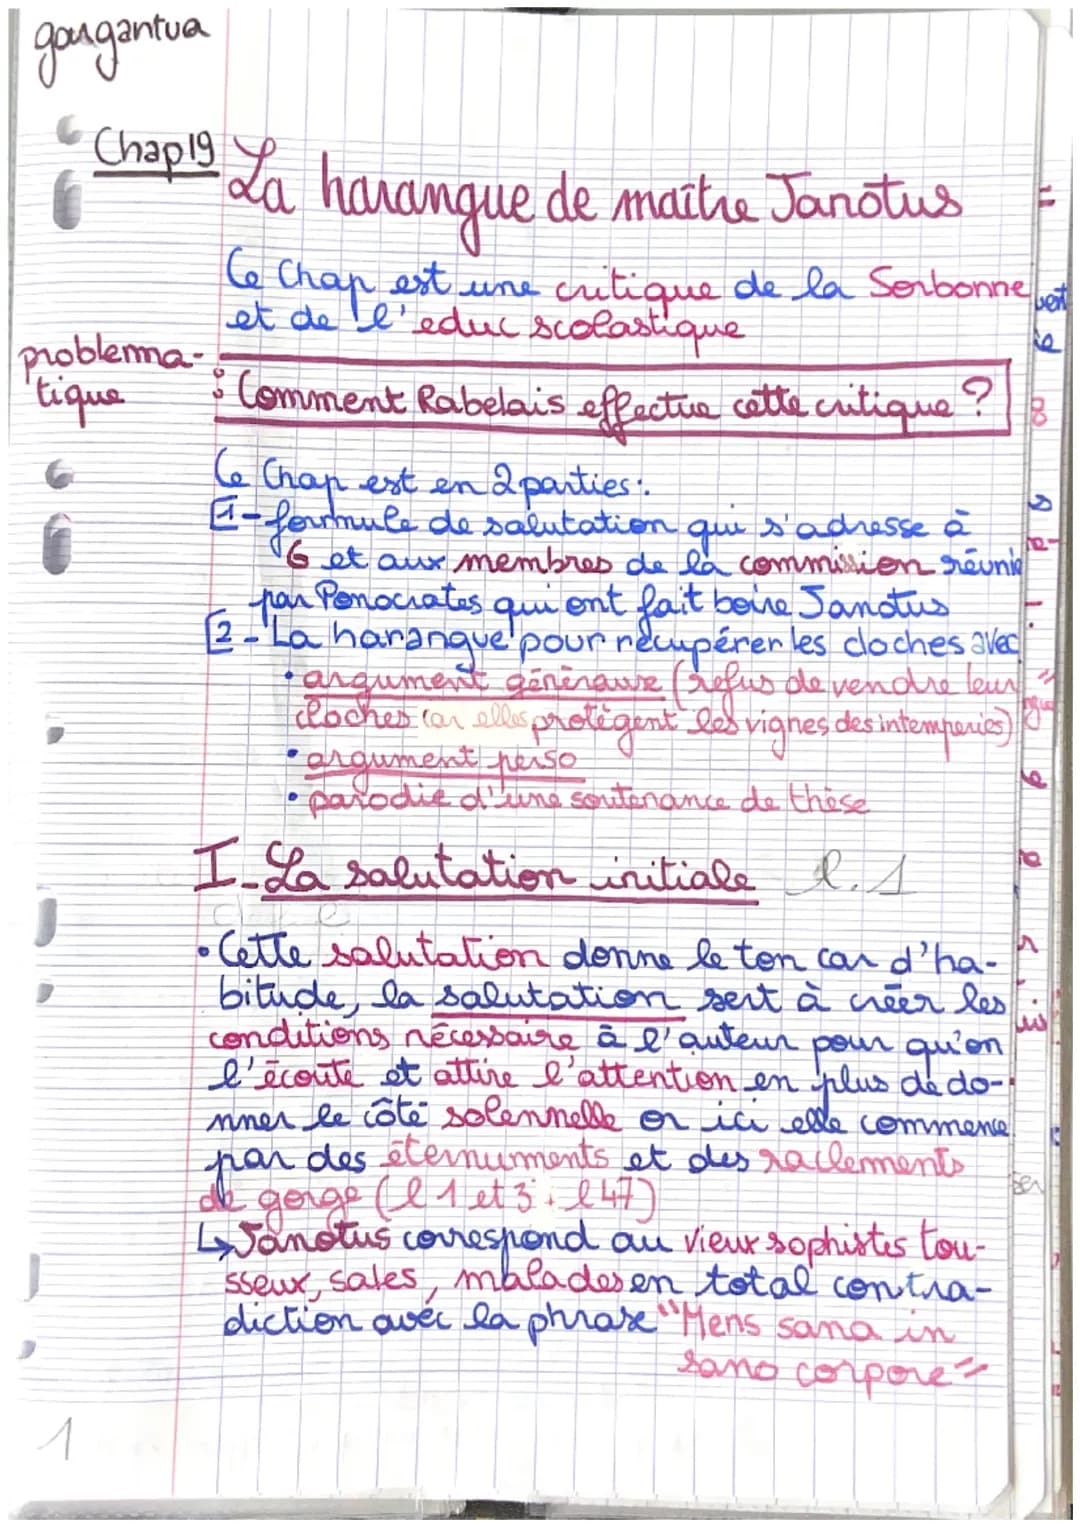 gargantua
Chap19
La harangue de maître Janotus
Ce Chap est une critique de la Sorbonne
et de l'educ scolastique
problema-
tique
: Comment Rabelais effectue cette critique ?
Ce Chap est en 2 parties:
1- formule de salutation qui s'adresse à
G et aux membres de la commission réunie
par Ponocrates qui ont fait boire Janotus
2 - La harangue pour récupérer les cloches avec
• argument généraux (refus de vendre leur
cloches car elles protègent les vignes des intemperies)
• argument perso
• parodie d'une soutenance de thèse
I - La salutation initiale l.1
• Cette salutation donne le ton car d'ha-
bitude, la salutation sert à créer les
conditions nécessaire à l'auteur pour qu'on
l'écoute et attire l'attention en plus de do-
nner le côté solennelle or ici elle commence
par des éternuments et des raclements
de gorge (l 1 et 3. l 47)
↳ Janotus correspond au vieux sophistes tou-
sseux, sales, malades en total contra-
diction avec la phrase "Mens sana in
sano corpore"
1